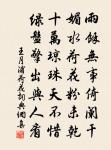 雨餘無事倚闌干
媚水荷花粉未乾
十萬瓊珠天不惜
綠盤擎出與人看
王月浦荷花詞典網友